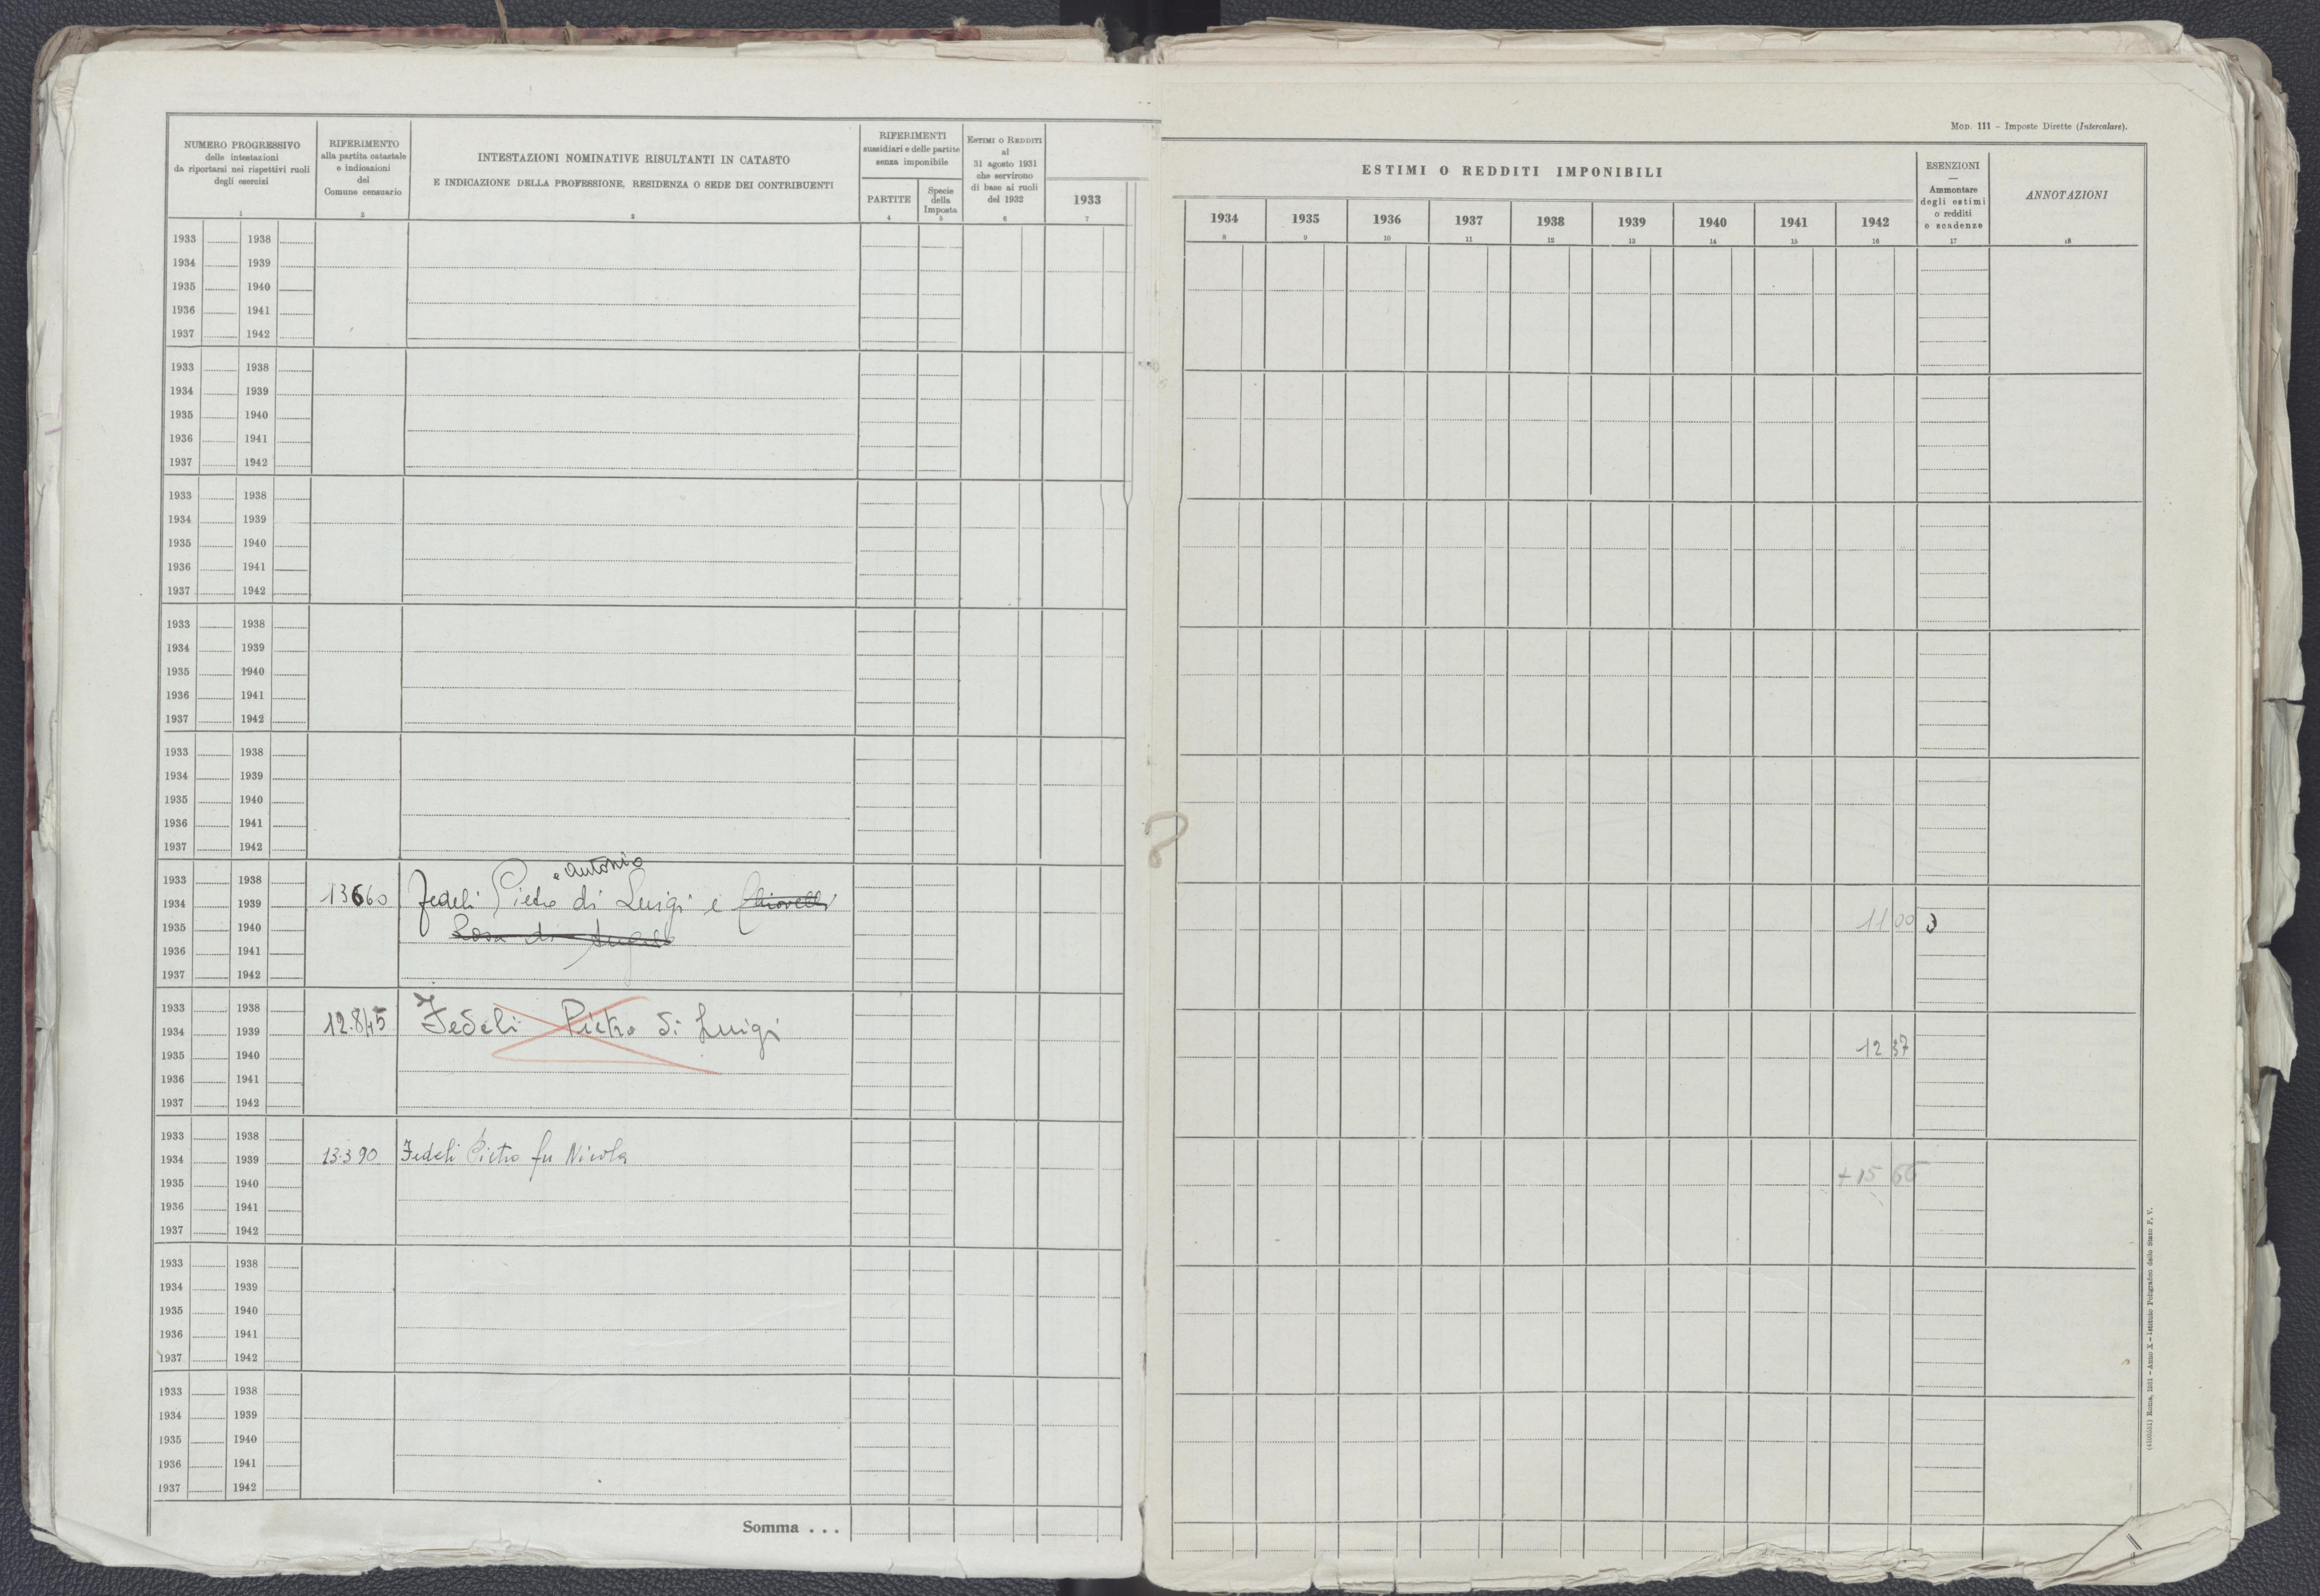 NUMERO PROGRESSIVO
delle intestazioni
da riportarsi nei rispettivi ruoli
degli esercizi
1
RIFERIMENTO
alla partita catastale
e indicazioni
del
Comune censuario
2
INTESTAZIONI NOMINATIVE RISULTANTI IN CATASTO
E INDICAZIONE DELLA PROFESSIONE, RESIDENZA O SEDE DEI CONTRIBUENTI
3
RIFERIMENTI
sussidiari e delle partite
senza imponibile
PARTITE
4
Specie
della
Imposta
5
ESTIMI O REDDITI
al
31 agosto 1931
che servirono
di base ai ruoli
del 1932
6
1933
7
1933 1938
1934 1939
1935 1940
1936 1941
1937 1942
1933 1938
1934 1939
1935 1940
1936 1941
1937 1942
1933 1938
1934 1939
1935 1940
1936 1941
1937 1942
1933 1938
1934 1939
1935 1940
1936 1941
1937 1942
1933 1938
1934 1939
1935 1940
1936 1941
1937 1942
e Antonio
1933 1938
1934 1939 13660 Fedeli Pietro di Luigi e Chiovelli
1935 1940 Rosa di
1936 1941
1937 1942
1933 1938
1934 1939 12.845 Fedeli Pietro di Luigi
1935 1940
1936 1941
1937 1942
1933 1938
1934 1939 13.390 Fedeli Pietro fu Nicola
1935 1940
1936 1941
1937 1942
1933 1938
1934 1939
1935 1940
1936 1941
1937 1942
1933 1938
1934 1939
1935 1940
1936 1941
1937 1942
Somma . . .
MOD. 111 – Imposte Dirette (Intercalare).
ESTIMI O REDDITI IMPONIBILI
1934 1935 1936 1937 1938 1939 1940 1941 1942
8 9 10 11 12 13 14 15 16
ESENZIONI
—
Ammontare
degli estimi
o redditi
e scadenze
17
ANNOTAZIONI
18
11 00
12 37
+ 15 66
(4105051) Roma, 1931 – Anno X – Istituto Poligrafico dello Stato P. V.